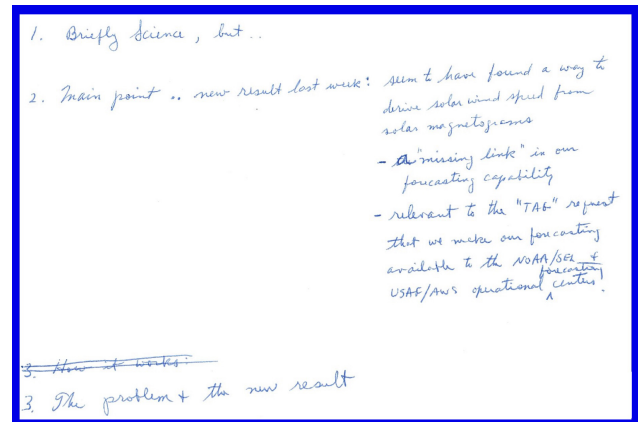 1. Briefly Science, but..
2. Main point .. new result last week: seem to have found a way to
derive solar wind speed from
solar magnetograms
- a "missing link" in our
forecasting capability
- relevant to the "TAG" request
that we make our forecasting
available to the NOAA/SEL &
USAF/AWS operational forecasting centers.
3. How it works:
3. The problem & the new result